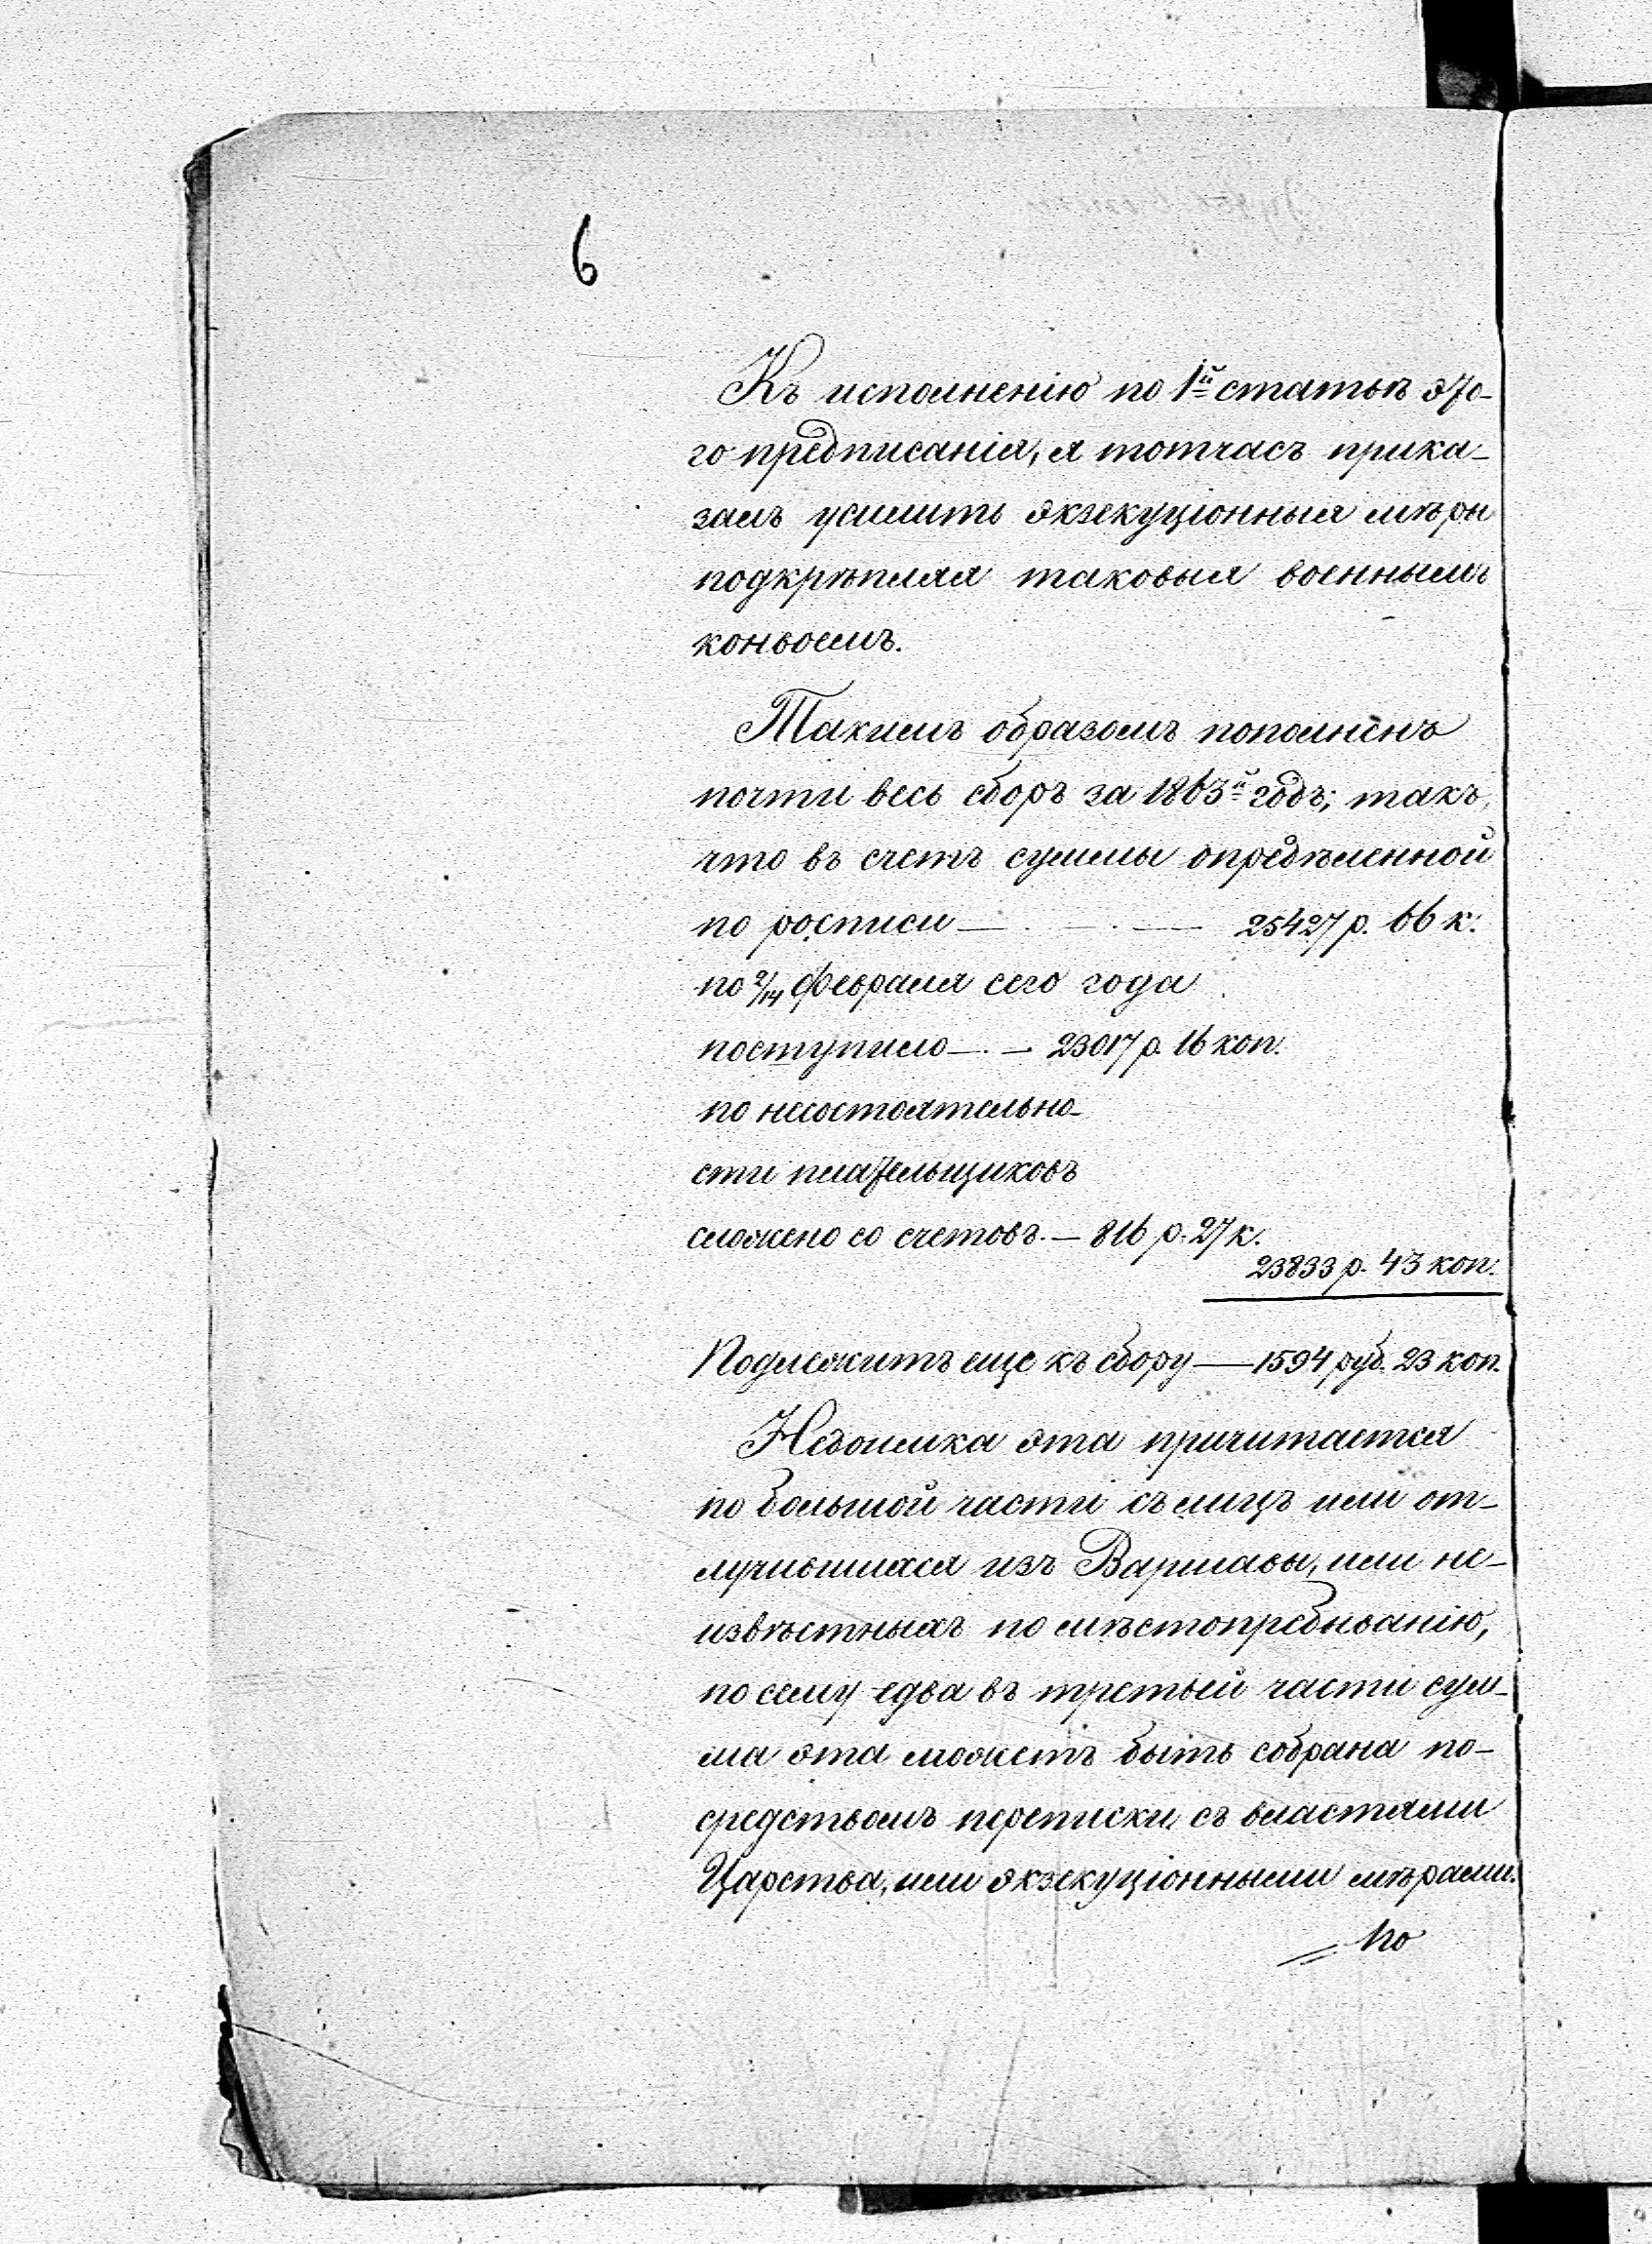 6
Къ исполненію по 1й статьѣ это-
го предписанія, я тотчасъ прика-
залъ усилить экзекуціонныя мѣры
подкрѣпляя таковыя военнымъ
конвоемъ.
Такимъ образомъ пополненъ
почти весь сборъ за 1863й годъ; такъ,
что въ счетъ суммы опредѣленной
по росписи — . — . — 25427 р. 66 к.
по 2/14 Февраля сего года
поступило — . — 23017 р. 16 коп.
по несостоятельно-
сти плательщиковъ
сложено со счетовъ. — 816 р. 27 к.
23833 р. 43 коп.
Подлежитъ еще къ сбору — 1594 руб. 23 коп.
Недоимка эта причитается
по большой части съ лицъ или от-
лучившихся изъ Варшавы, или не-
извѣстныхъ по мѣстопребыванію,
по сему едва въ третьей части сум-
ма эта можетъ быть собрана по-
средствомъ переписки съ властями
Царства, или экзекуціонными мѣрами.
По